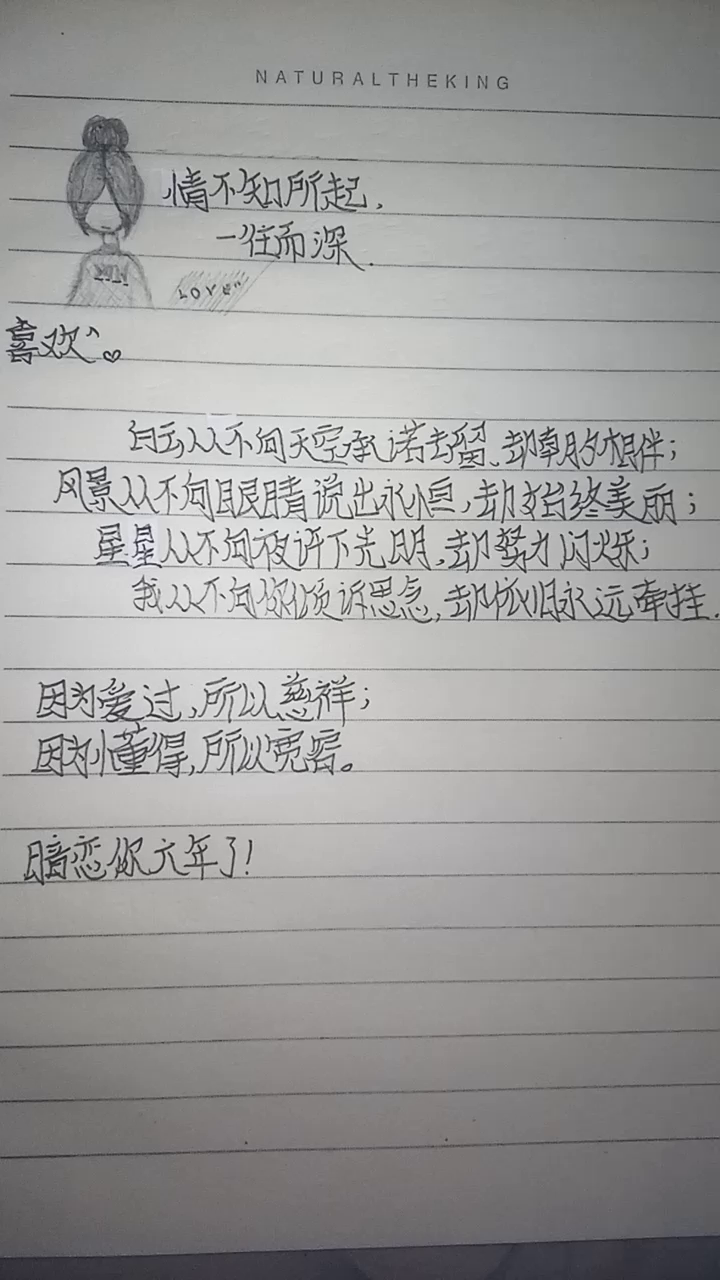 NATURALTHEKING
情不知所起,
一往而深.
LOVE"
喜欢
白云从不向天空承诺去留、却朝夕相伴;
风景从不向眼睛说出永恒,却始终美丽;
星星从不向夜许下光明,却努力闪烁;
我从不向你倾诉思念,却依旧永远牵挂.
因为爱过,所以慈祥;
因为懂得,所以宽容。
暗恋你六年了!